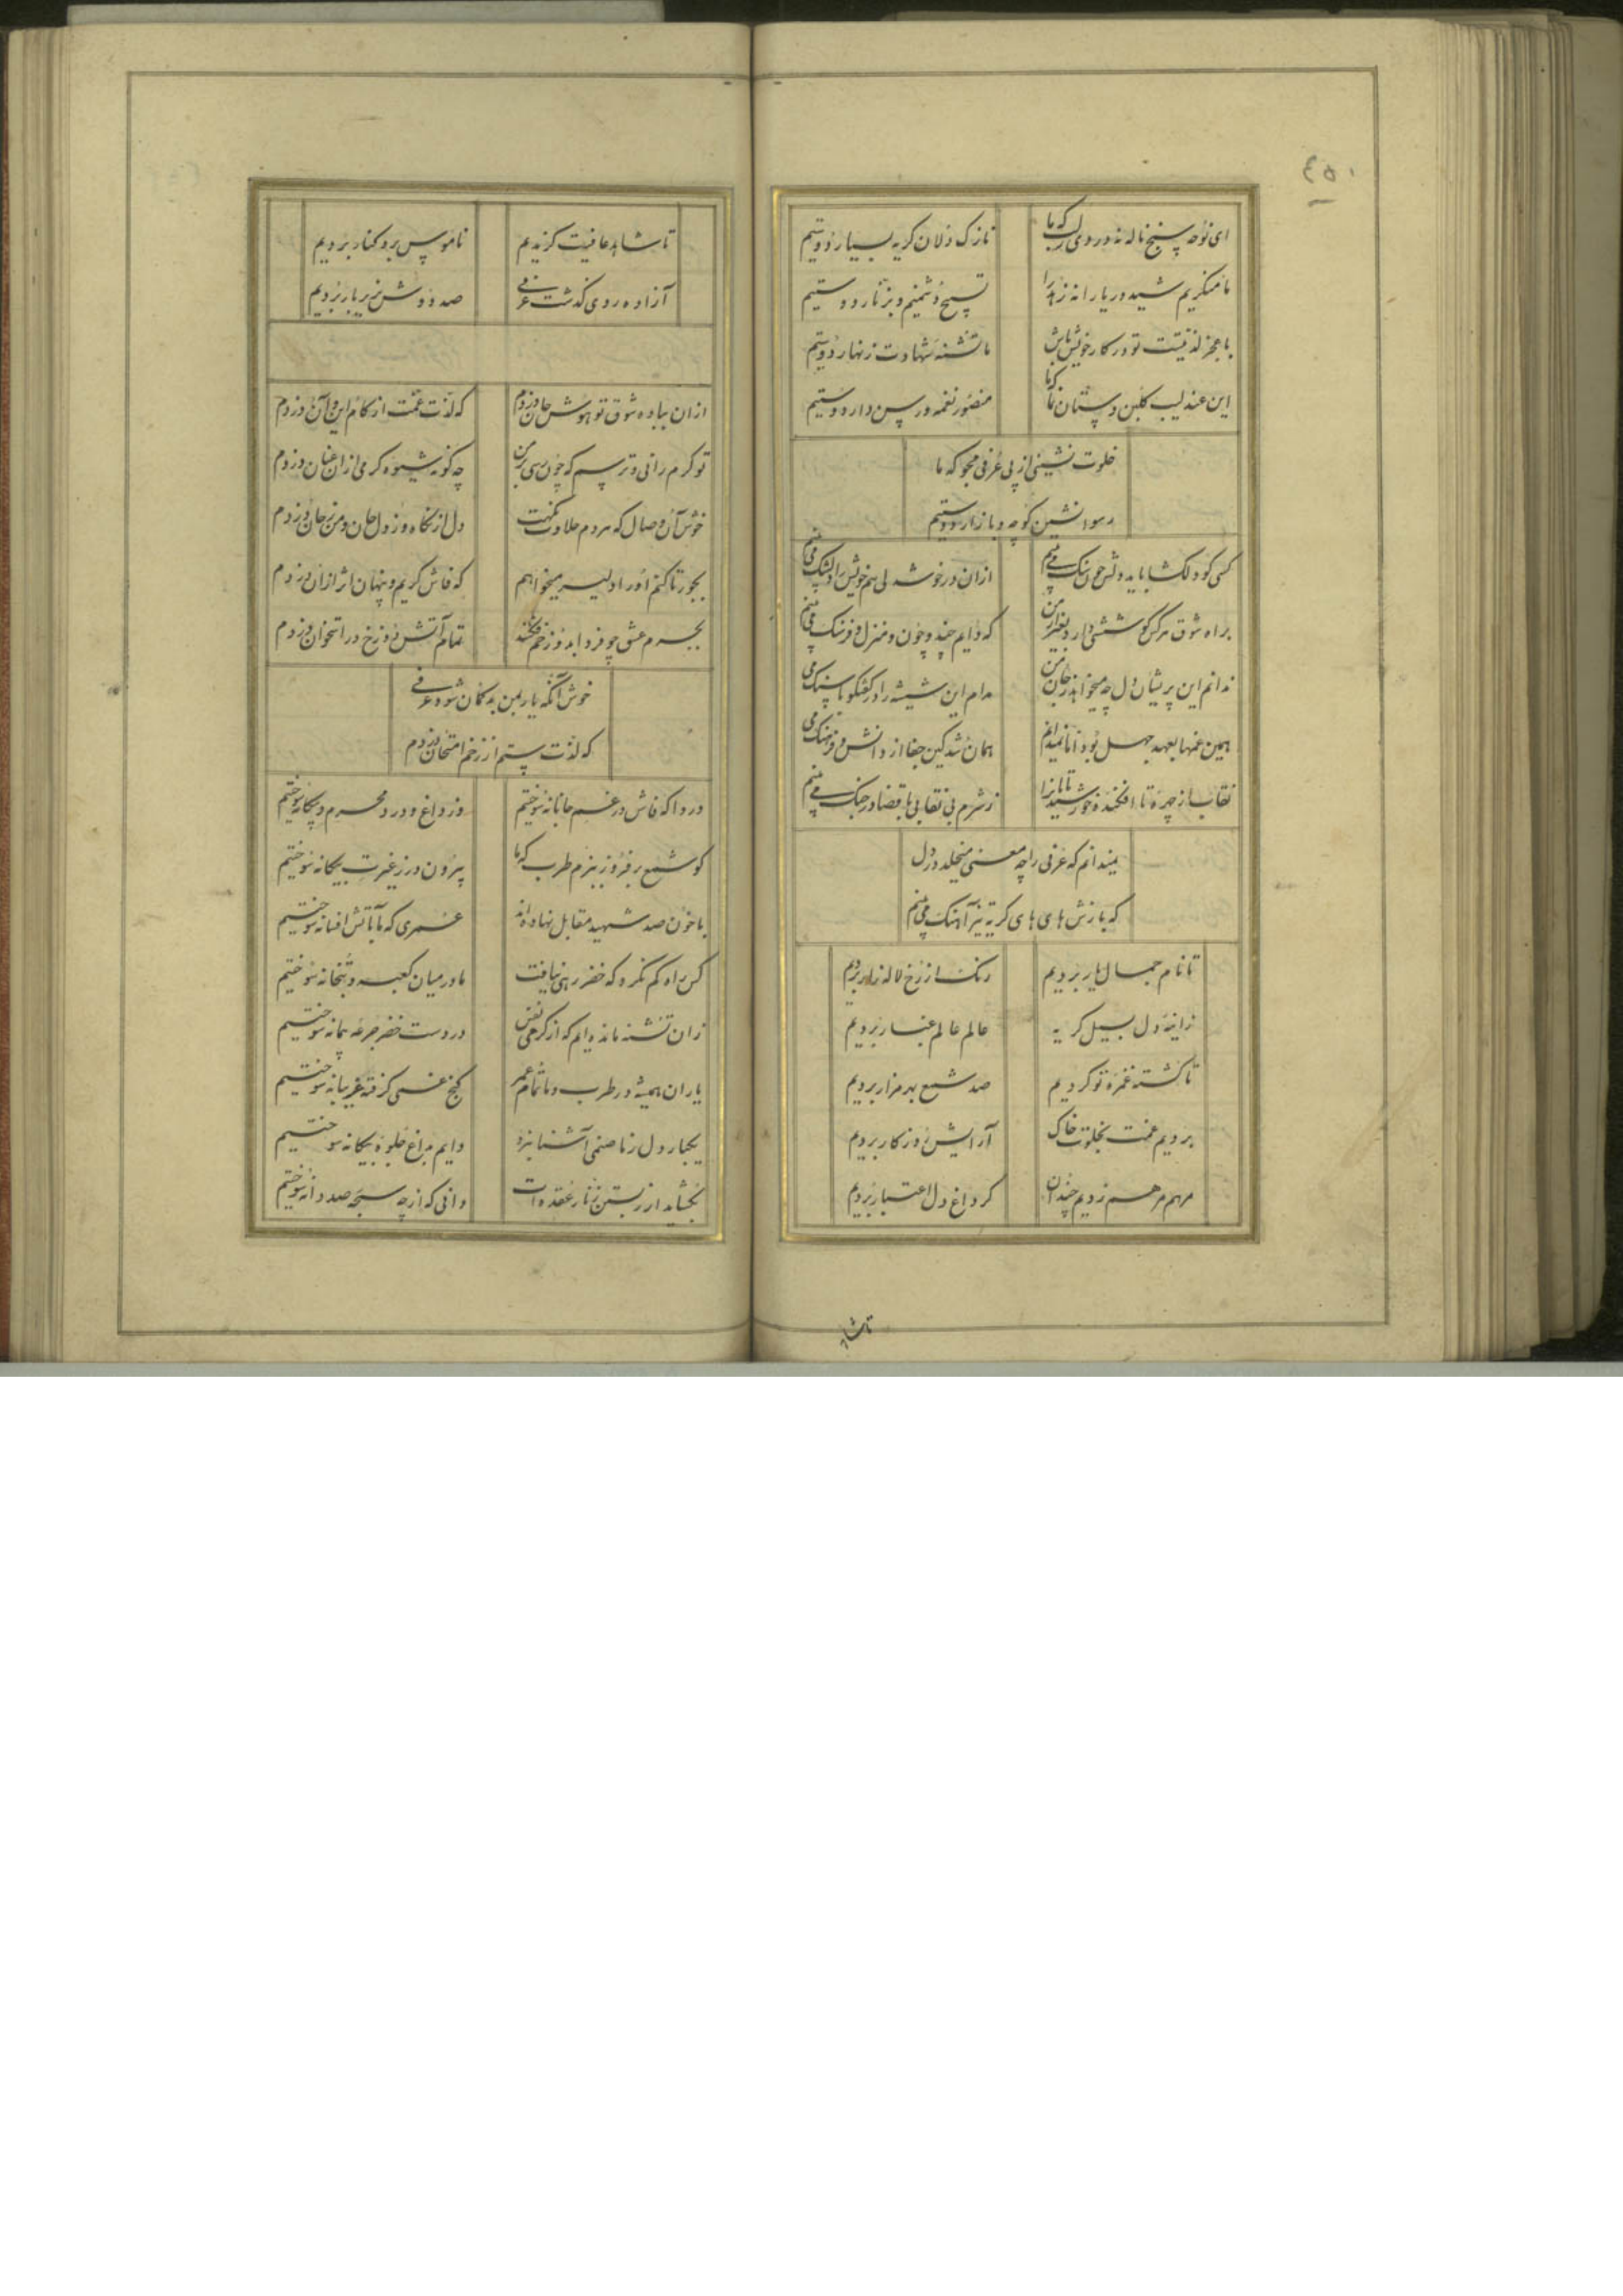 ۴۵۰
ای نوحه سنج ناله نه دردی که ما نازک دلان گریه بسیار دوستیم
ما منکریم شید و ریا را نه زهد را تسبیح دشمنیم و بزنار دوستیم
با عجز لذتیست تو در کار خویش باش ما تشنه شهادت زنهار دوستیم
این عندلیب گلبن دستان منصور نغمه در پس دار دوستیم
خلوت نشینی از پی عرفی مجو که ما
رسوا نشین کوچه و بازار دوستیم
کسی کو دلکشا باید دلش چون سنک می بینم ازان در خوشدلی هم خویش را دلتنک می بینم
براه شوق هر کس کوششی دارد بغیر از من که دایم چند و چون و منزل و فرسنک می بینم
ندانم این پریشان دل چه میخواهد ز جان من مدام این شیشه را در گفتگو با سنک می بینم
همین غمها بعهد جهل بود اما نمیدانم همان شد کین جفا از دانش و فرهنک می بینم
نقاب از چهره تا افکنده خورشید تابانرا ز شرم بی نقابی با قضا در جنک می بینم
نمیدانم که عرفی را چه معنی میخلد در دل
که بازش های های گریه تیز آهنک می بینم
تا نام جمال یار بردیم رنک از رخ لاله زار بردیم
ز آینه دل بسیل گریه عالم عالم غبار بردیم
تا کشته غمزه تو گردیم صد شمع بهر مزار بردیم
بردیم غمت بخلوت خاک آرایش روزگار بردیم
مرهم مرهم زدیم چندان کز داغ دل اعتبار بردیم
تا شاهد
تا شاهد عافیت گزیدیم ناموس برد کنار بردیم
آزاده روی گذشت عرفی صد دوش بزیر بار بردیم
ازان بباده شوق تو هوش جان دزدم که لذت غمت از کام این و آن دزدم
تو گرم رانی و ترسم که چون رسی بر من چه گونه شیوه گرمی ازان عنان دزدم
خوش آن وصال که مردم حلاوت نگهت دل از نگاه و ز دل جان و من ز جان دزدم
بجور تا کنم او را دلیر میخواهم که فاش گریم و پنهان اثر ازان دزدم
بجرم عشق چو فردا بدوزخم فکنند تمام آتش دوزخ در استخوان دزدم
خوش آنگه یار بمن بدگمان شود عرفی
که لذت ستم از زخم امتحان دزدم
دردا که فاش در غم جانانه سوختیم وز داغ و درد محرم و بیگانه سوختیم
کو شمع برفروز ببزم طرب که ما بیرون در ز غیرت بیگانه سوختیم
با خون صد شهید مقابل نهاده اند عمری که ما بآتش افسانه سوختیم
کس راه گم نکرد که خضر رهی نیافت ما در میان کعبه و بتخانه سوختیم
زان تشنه مانده ایم که از گرمی نفس در دست خضر جرعه پیمانه سوختیم
یاران همیشه در طرب و ما تمام عمر کنج غمی گرفته غریبانه سوختیم
یکبار دل ز ما صنمی آشنا نبرد دایم بداغ جلوه بیگانه سوختیم
نگشاید از نبستن زنار عقده ات دانی که از چه سبحه صد دانه سوختیم